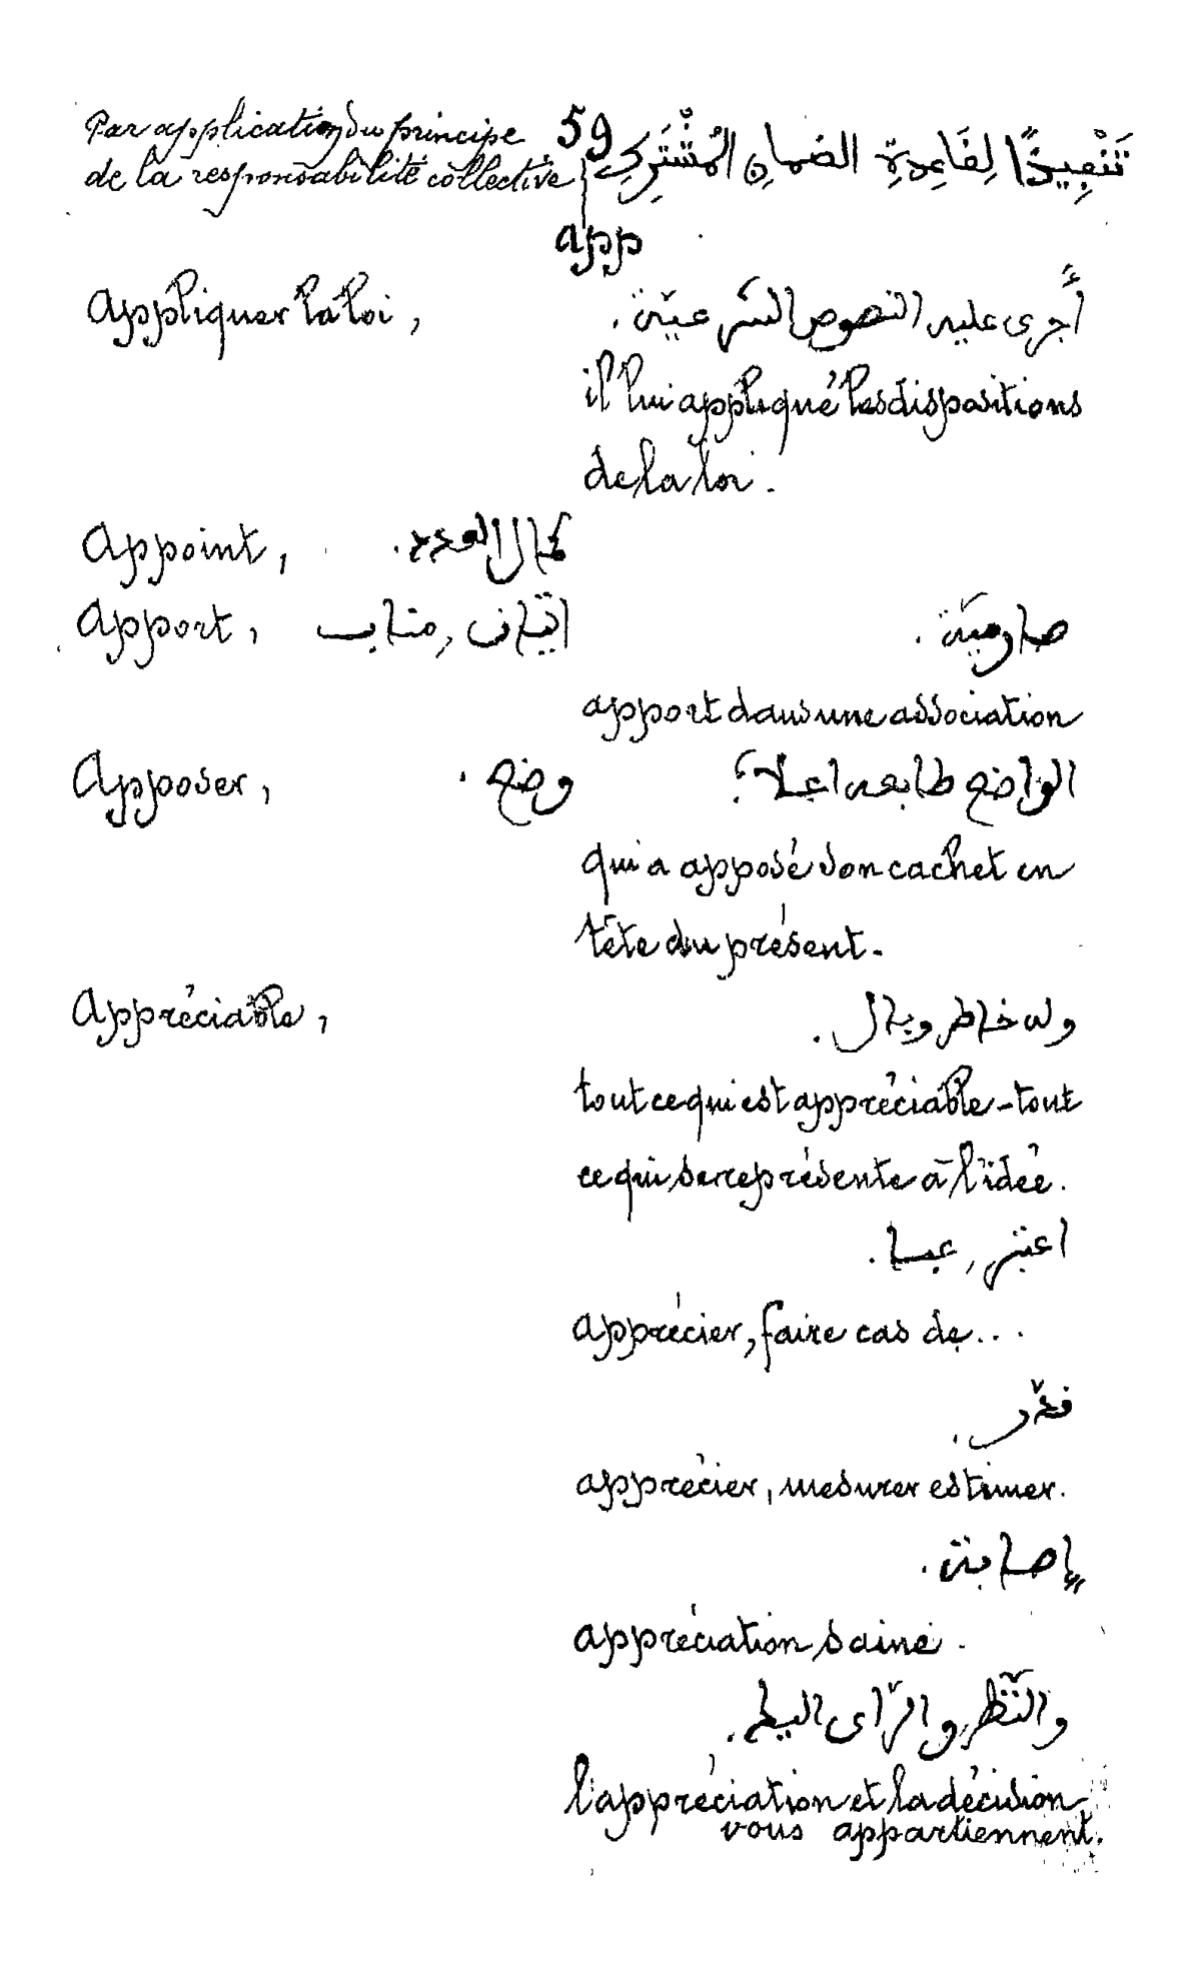 59
Par application du principe تَنْفِيذًا لِقَاعِدَةِ الضمانِ المُشْتَرَكِ
de la responsabilité collective
app
Appliquer la loi, أُجرى عليه النصوص الشرعيّة.
il lui appliqué les dispositions
de la loi.
Appoint, كمال العدد.
Apport, اتيان, مناب
apport dans une association
Apposer, وضع. الواضع طابعه اعلاه
qui a apposé son cachet en
tête du présent.
Appréciable, وله خاطر وبال.
tout ce qui est appréciable - tout
ce qui se représente à l'idée.
اعتبر, عبا.
apprécier, faire cas de...
قدّر.
apprécier, mesurer estimer.
إصابة.
appréciation saine.
والنّظر والرّأى اليكم.
l'appréciation et la décision
vous appartiennent.